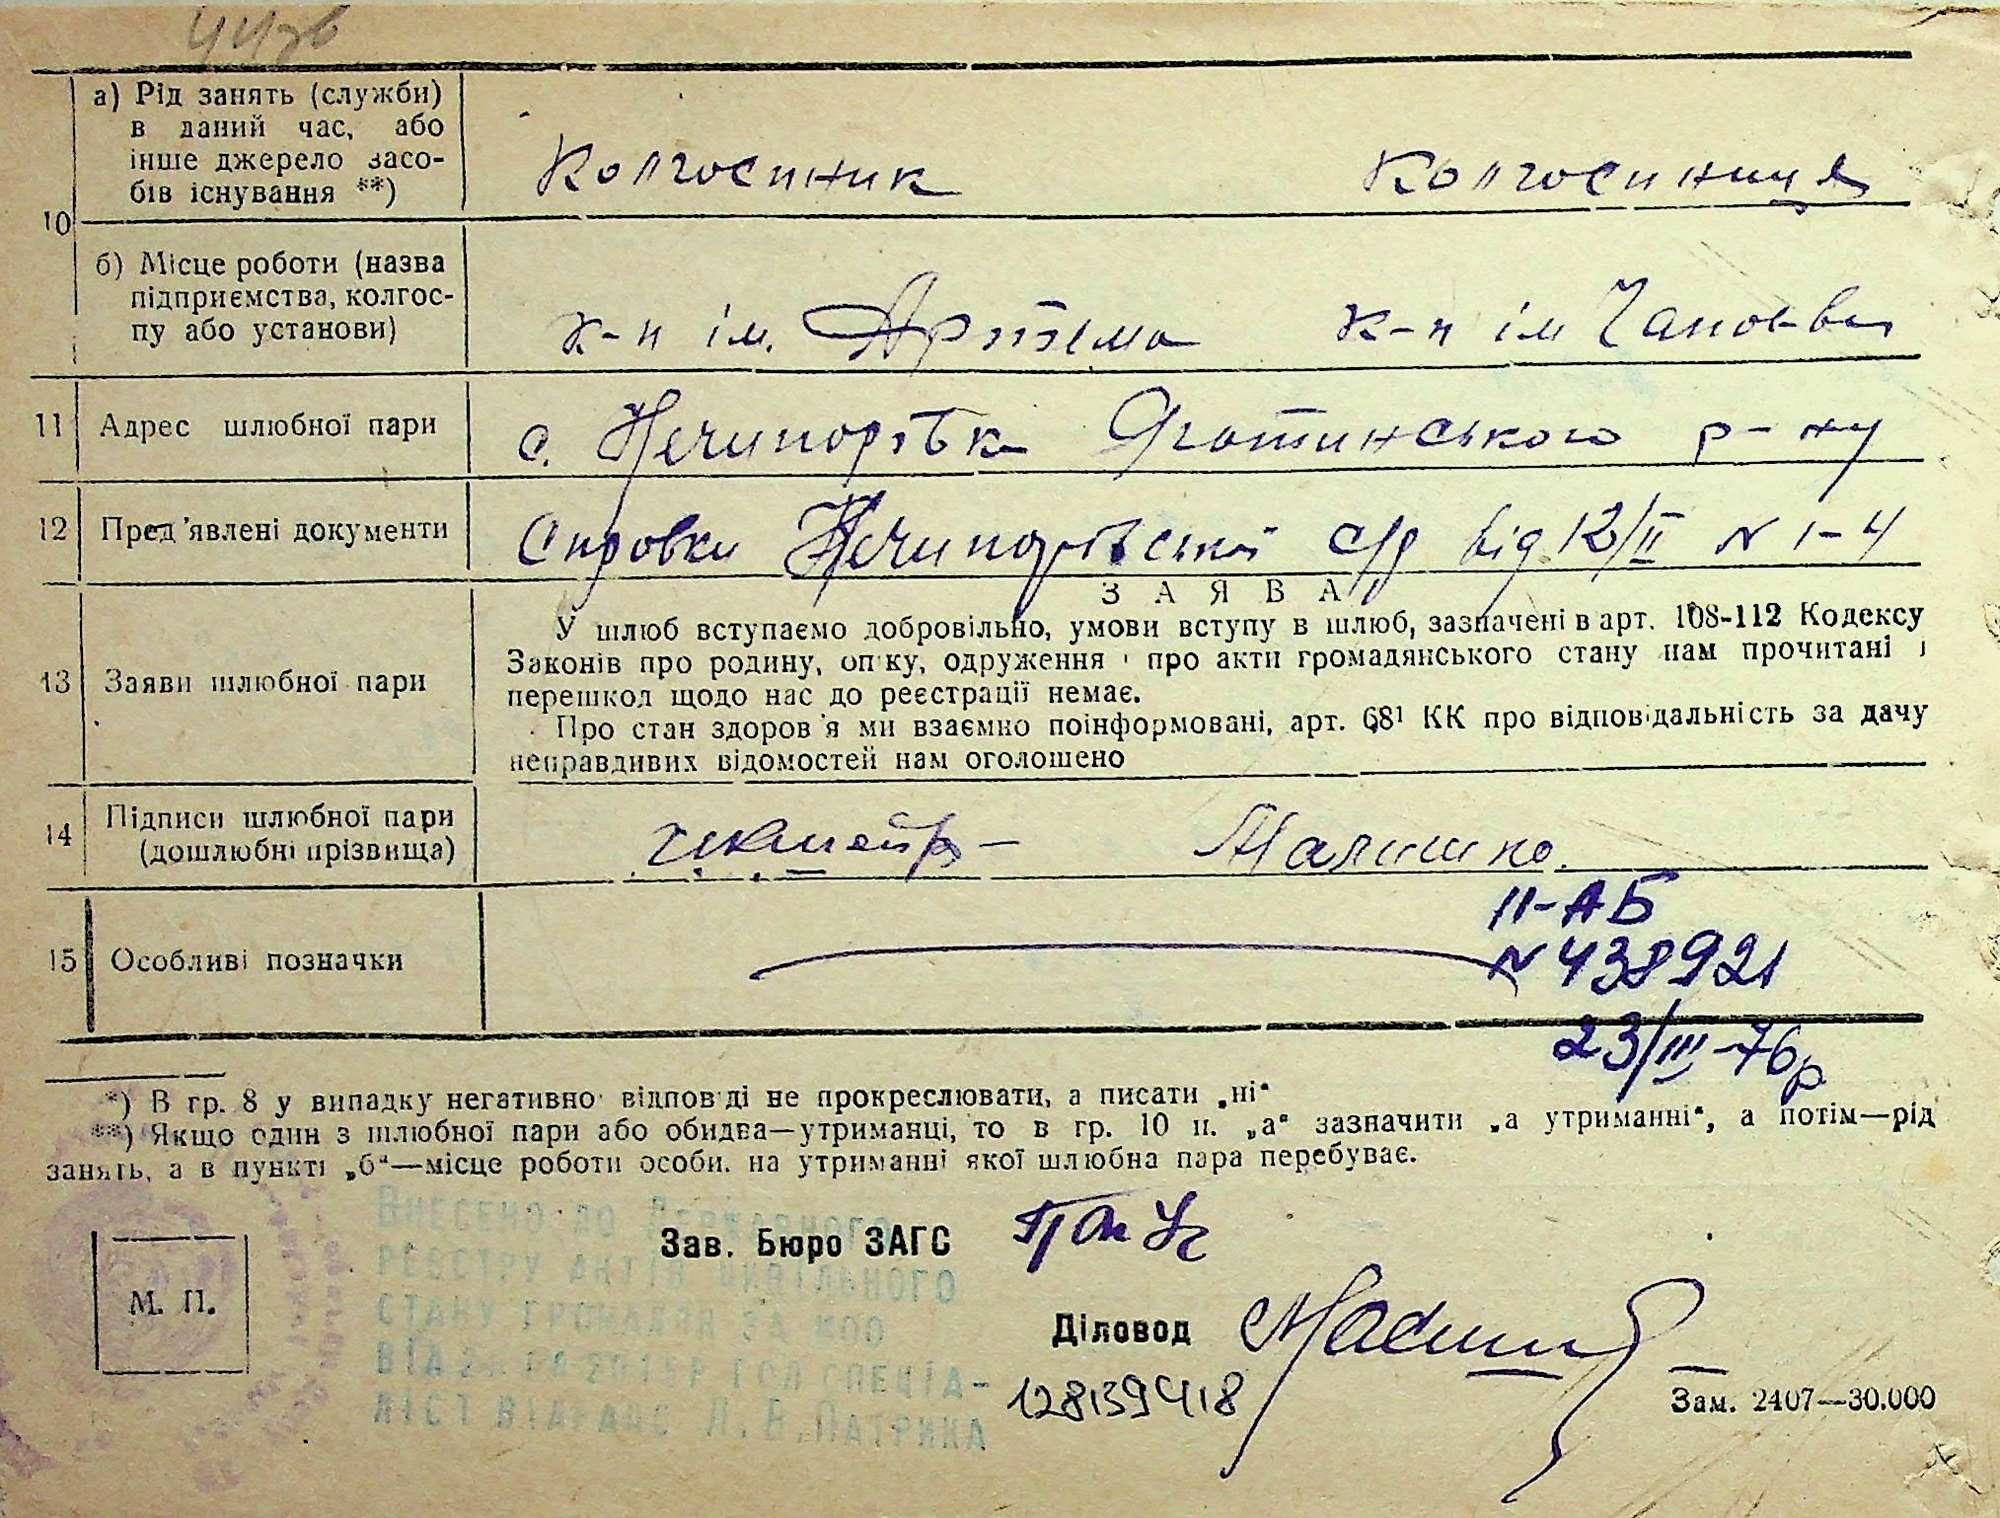 а) Рід занять (служби)
в даний час, або
інше джерело засо-
бів існування **)
Колгоспник Колгоспниця
10
б) Місце роботи (назва
підприємства, колгос-
пу або установи)
к-п ім. Артема к-п ім Чапаєва
11 Адрес шлюбної пари с. Нечипорівка Яготинського р-ну
12 Пред'явлені документи Справки Нечипорівської с/р від 12/II N 1-4
ЗАЯВА
У шлюб вступаємо добровільно, умови вступу в шлюб, зазначені в арт. 108-112 Кодексу
Законів про родину, опіку, одруження і про акти громадянського стану нам прочитані і
13 Заяви шлюбної пари
перешкод щодо нас до реєстрації немає.
Про стан здоров'я ми взаємно поінформовані, арт. 68¹ КК про відповідальність за дачу
неправдивих відомостей нам оголошено
14 Підписи шлюбної пари
(дошлюбні прізвища)
Малишко.
II-АБ
15 Особливі позначки
N 438921
23/III-76р
*) В гр. 8 у випадку негативної відповіді не прокреслювати, а писати „ні“
**) Якщо один з шлюбної пари або обидва—утриманці, то в гр. 10 п. „а“ зазначити „а утриманні“, а потім—рід
занять, а в пункті „б“—місце роботи особи, на утриманні якої шлюбна пара перебуває.
Внесено до Державного
реєстру актів цивільного
стану громадян за №00
Зав. Бюро ЗАГС
М. П.
Діловод
спеціа-
ліст Н. В. Патрика
128139418
Зам. 2407—30.000